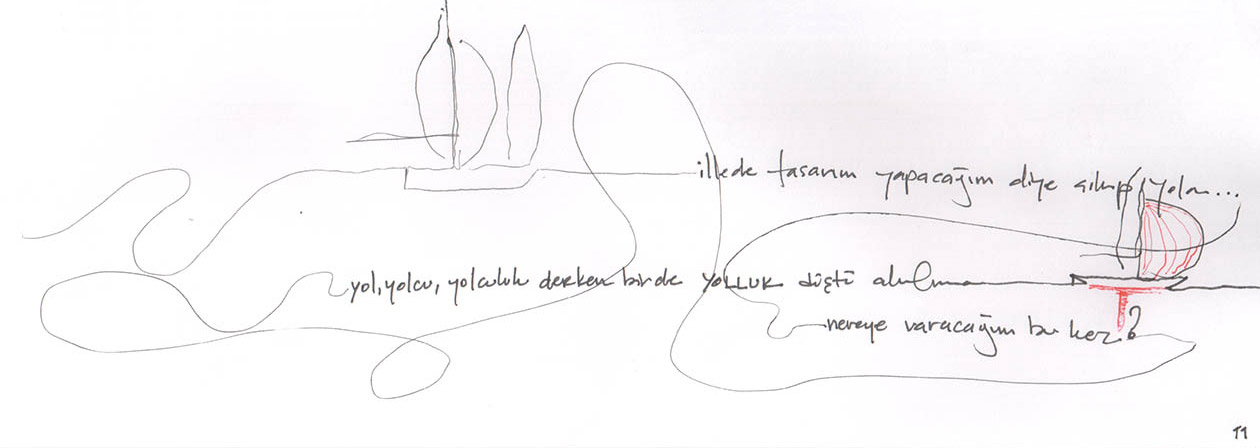 illede tasarım yapacağım diye çıkıp yola...
yol, yolcu, yolculuk derken birde YOLLUK düştü aklıma
nereye varacağım bu kez?
11